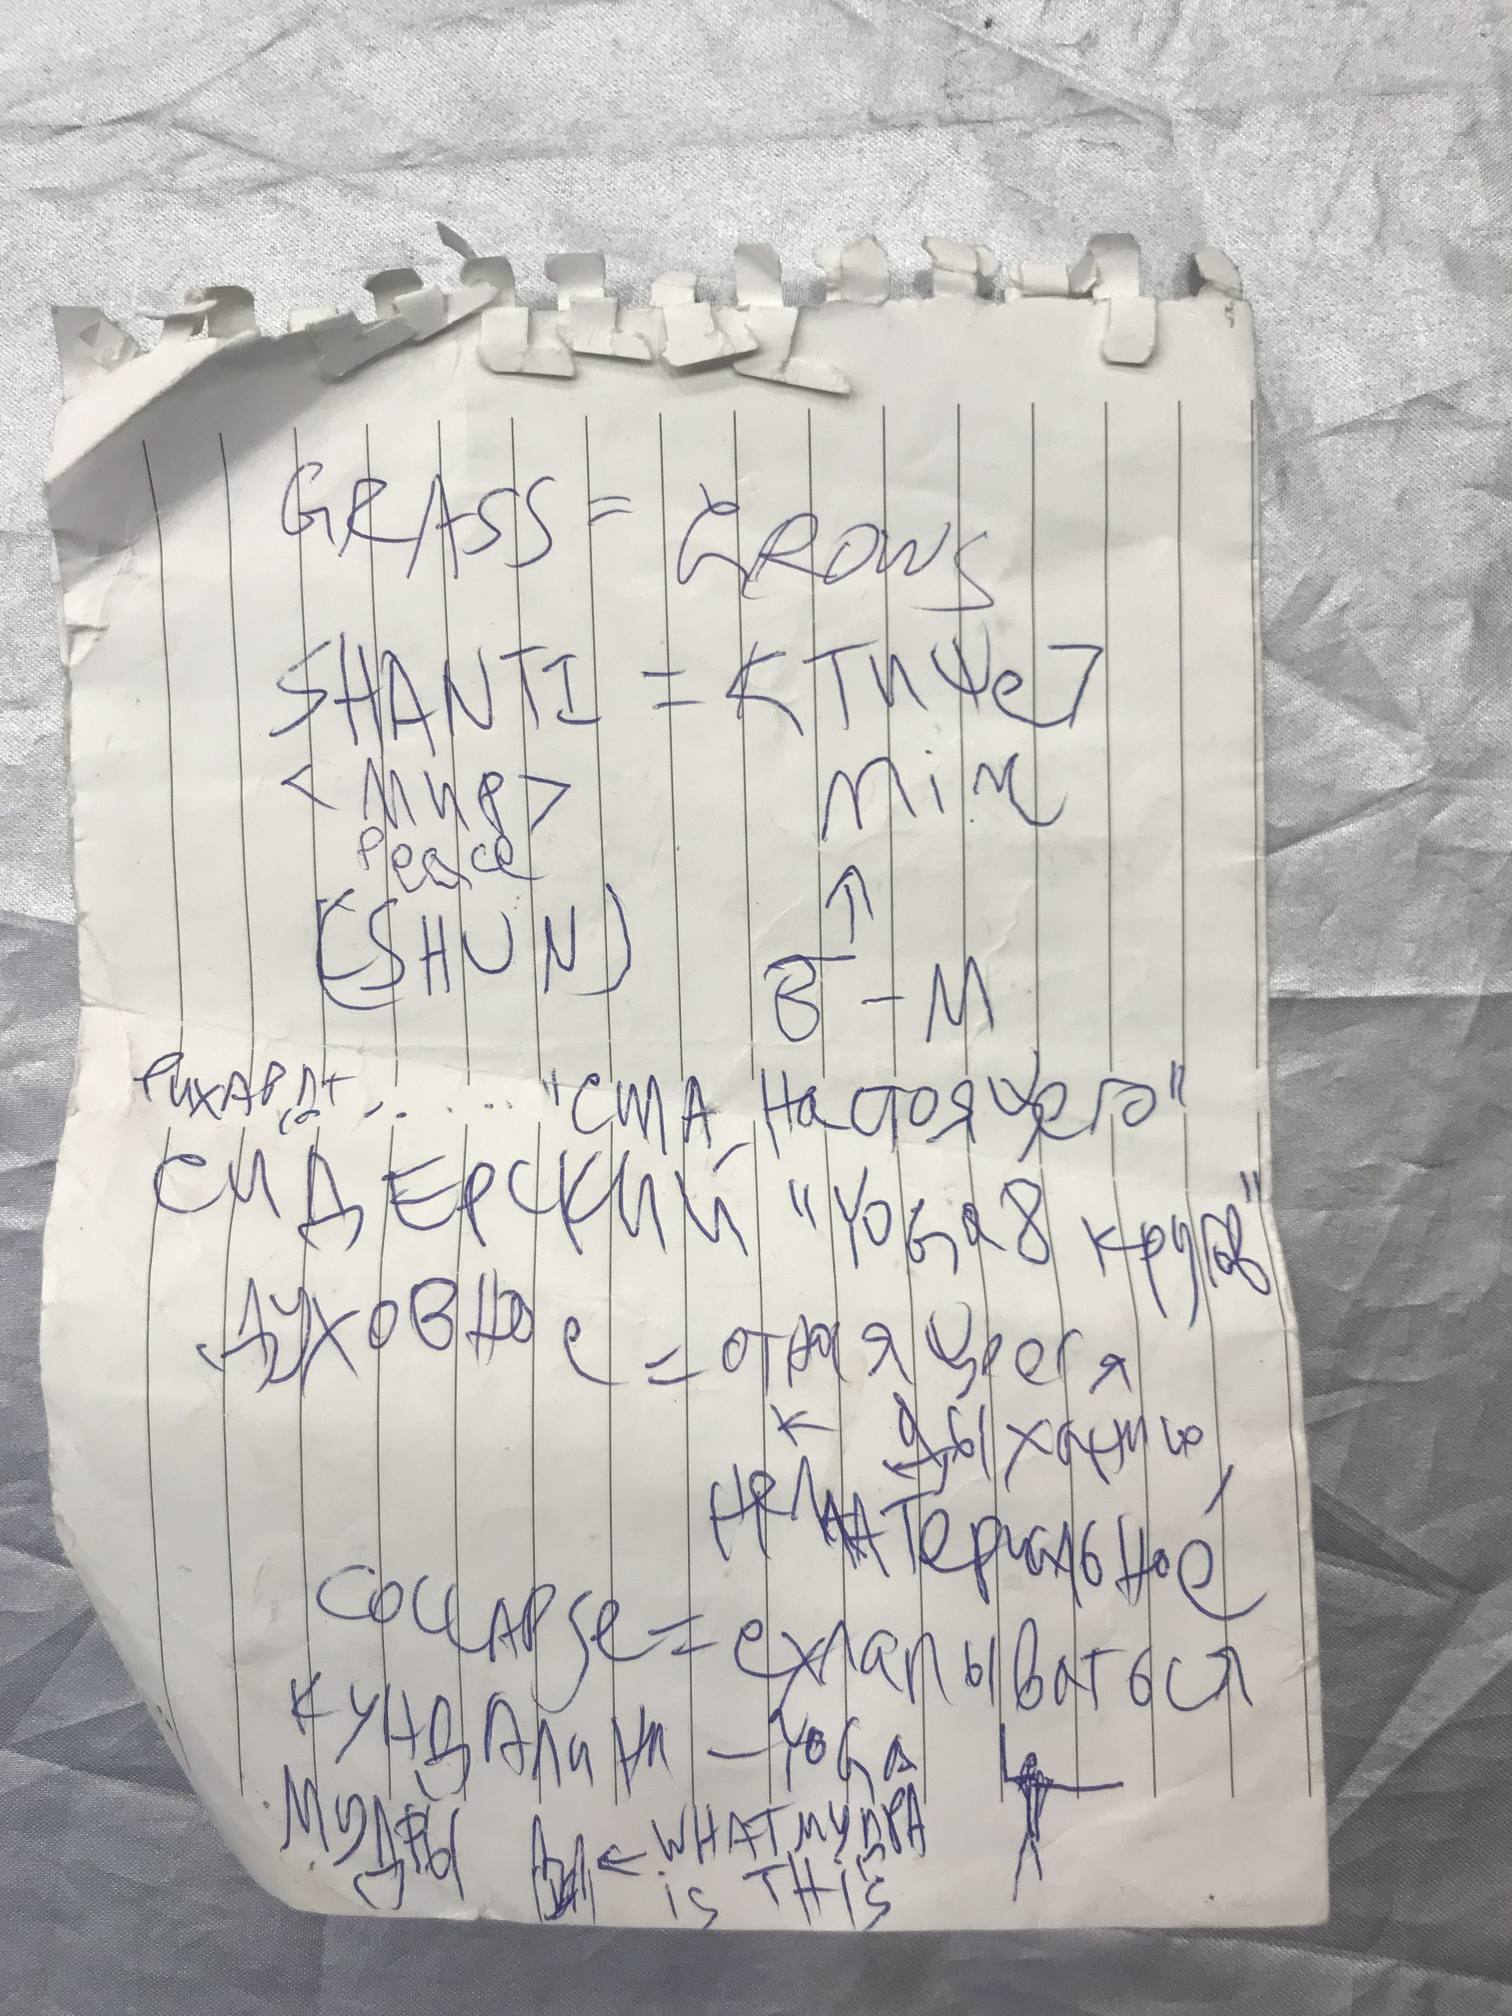 GRASS = GROWS
SHANTI = К ТИЩЕ]
<МИР> mix
Peace ↑
(SHUN) B - M
РИХАРД ...... "СИЛА НАСТОЯЩЕГО"
СИДЕРСКИЙ "YOGA 8 КРУГОВ"
ДУХОВНОЕ =
К ДЫХАНИЮ
НЕМАТЕРИАЛЬНОЕ
COLLAPSE = СХЛАПЫВАТЬСЯ
КУНДАЛИНИ - YOGA
МУДРЫ ← WHAT МУДРА
is THIS